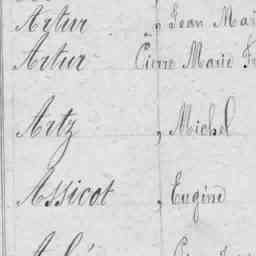 Artur , Jean Ma
Artur Pierre Marie F
Artz , Michel
Assicot , Eugène